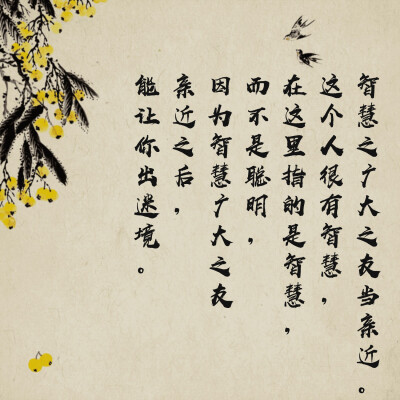 智慧之广大之友当亲近。
这个人很有智慧，
在这里指的是智慧，
而不是聪明，
因为智慧广大之友
亲近之后，
能让你出迷境。